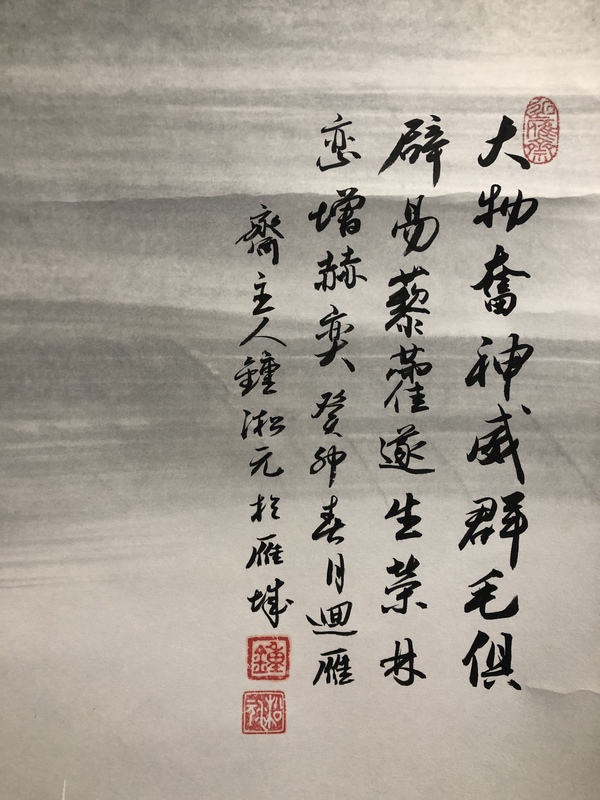 迴雁齋
大物奮神威群毛俱
辟易藜藿遂生榮林
峦增赫奕癸卯春月迴雁
齋主人鍾淞元於雁城
鍾